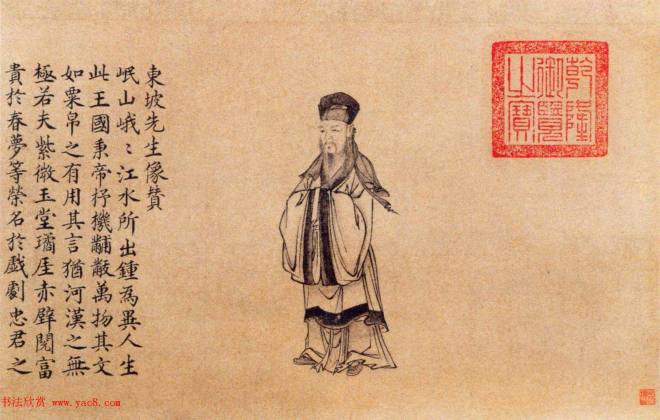 東坡先生像贊
岷山峨〻江水所出鍾為異人生
此王國秉帝杼機黼黻萬物其文
如粟帛之有用其言猶河漢之無
極若夫紫微玉堂瓊厓赤壁閱富
貴於春夢等榮名於戲劇忠君之
乾隆
御覽
之寶
书法欣赏 www.yac8.com